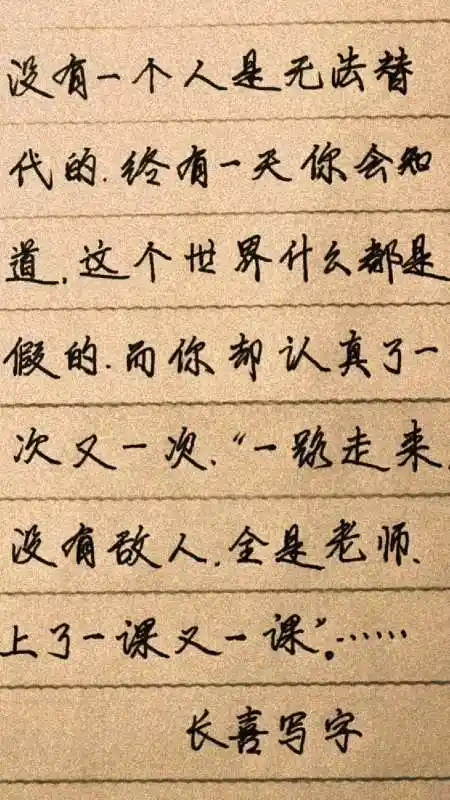 没有一个人是无法替
代的.终有一天你会知
道.这个世界什么都是
假的.而你却认真了一
次又一次.“一路走来.
没有敌人.全是老师.
上了一课又一课”。……
长喜写字